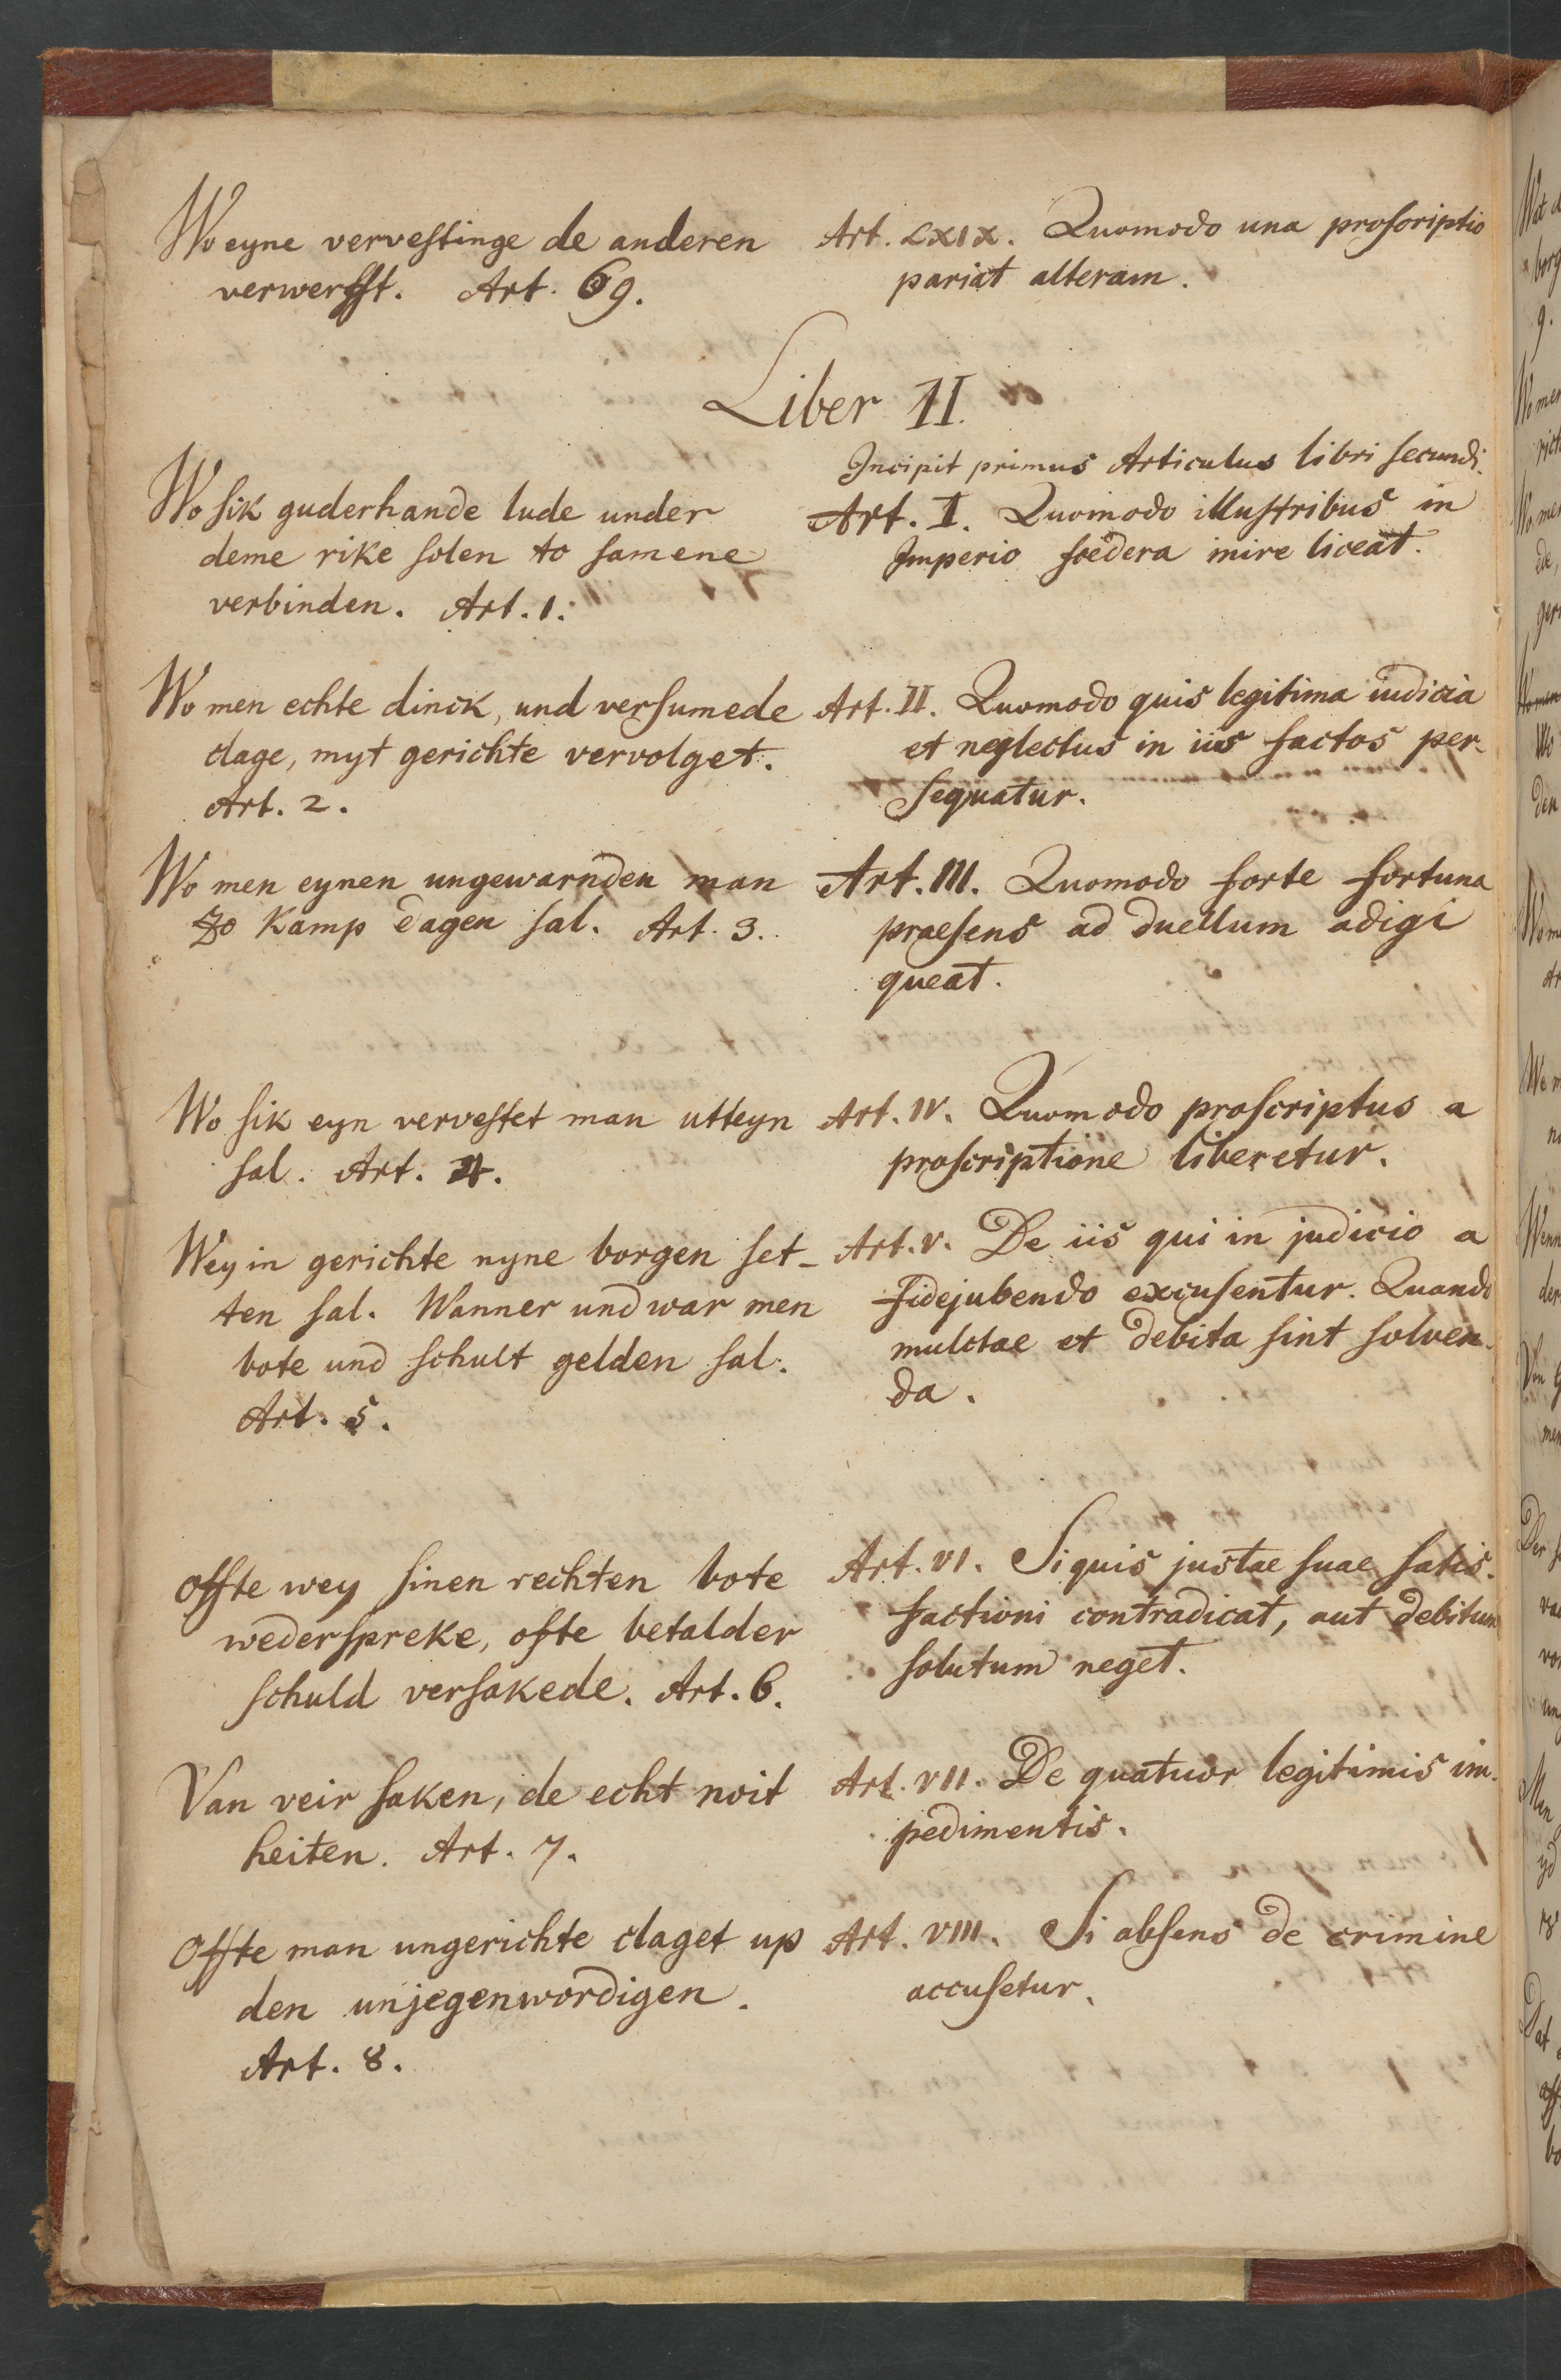 Wo eyne vervestinge de anderen
verwerfft. Art. 69.
Art. LXIX. Quomodo una proscriptio
pariat alteram.
Liber II.
Incipit primus Articulus libri secundi.
Wo sik guderhande lude under
deme rike solen to samene
verbinden. Art. 1.
Art. I. Quomodo illustribus in
Imperio foedera inire liceat.
Wo men echte dinck, und versumede
clage, myt gerichte vervolget.
Art. 2.
Art. II. Quomodo quis legitima iudicia
et neglectus in iis factos per-
sequatur.
Wo men eynen ungewarnden man
zo kamp dagen sal. Art. 3.
Art. III. Quomodo forte fortuna
praesens ad duellum adigi
queat.
Wo sik eyn vervestet man utteyn
sal. Art. 4.
Art. IV. Quomodo proscriptus a
proscriptione liberetur.
Wey in gerichte nyne borgen set-
ten sal. Wanner und war men
bote und schult gelden sal.
Art. 5.
Art. V. De iis qui in judicio a
fidejubendo excusentur. Quando
mulctae et debita sint solven-
da.
Offte wey sinen rechten bote
wederspreke, ofte betalder
schuld versakede. Art. 6.
Art. VI. Si quis justae suae satis-
factioni contradicat, aut debitum
solutum neget.
Van veir saken, de echt noit
heiten. Art. 7.
Art. VII. De quatuor legitimis im-
pedimentis.
Offte man ungerichte claget up
den unjegenwordigen.
Art. 8.
Art. VIII. Si absens de crimine
accusetur.